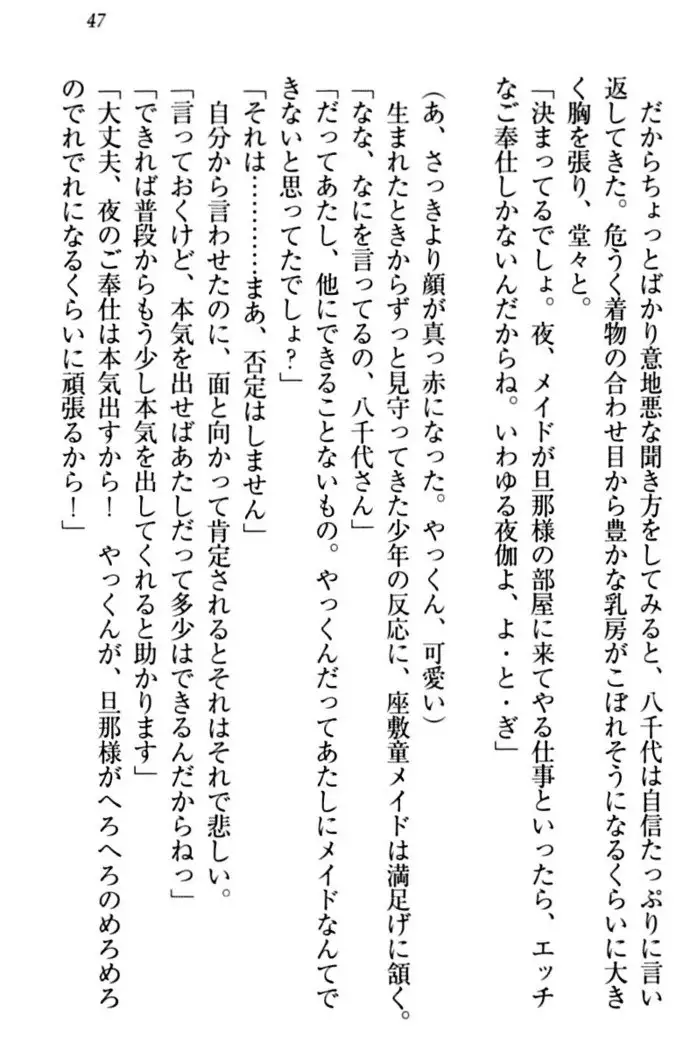 47
だからちょっとばかり意地悪な聞き方をしてみると、八千代は自信たっぷりに言い
返してきた。危うく着物の合わせ目から豊かな乳房がこぼれそうになるくらいに大き
く胸を張り、堂々と。
「決まってるでしょ。夜、メイドが旦那様の部屋に来てやる仕事といったら、エッチ
なご奉仕しかないんだからね。いわゆる夜伽よ、よ・と・ぎ」
(あ、さっきより顔が真っ赤になった。やっくん、可愛い)
生まれたときからずっと見守ってきた少年の反応に、座敷童メイドは満足げに頷く。
「なな、なにを言ってるの、八千代さん」
「だってあたし、他にできることないもの。やっくんだってあたしにメイドなんてで
きないと思ってたでしょ?」
「それは…………まあ、否定はしません」
自分から言わせたのに、面と向かって肯定されるとそれはそれで悲しい。
「言っておくけど、本気を出せばあたしだって多少はできるんだからねっ」
「できれば普段からもう少し本気を出してくれると助かります」
「大丈夫、夜のご奉仕は本気出すから! やっくんが、旦那様がへろへろのめろめろ
のでれでれになるくらいに頑張るから!」